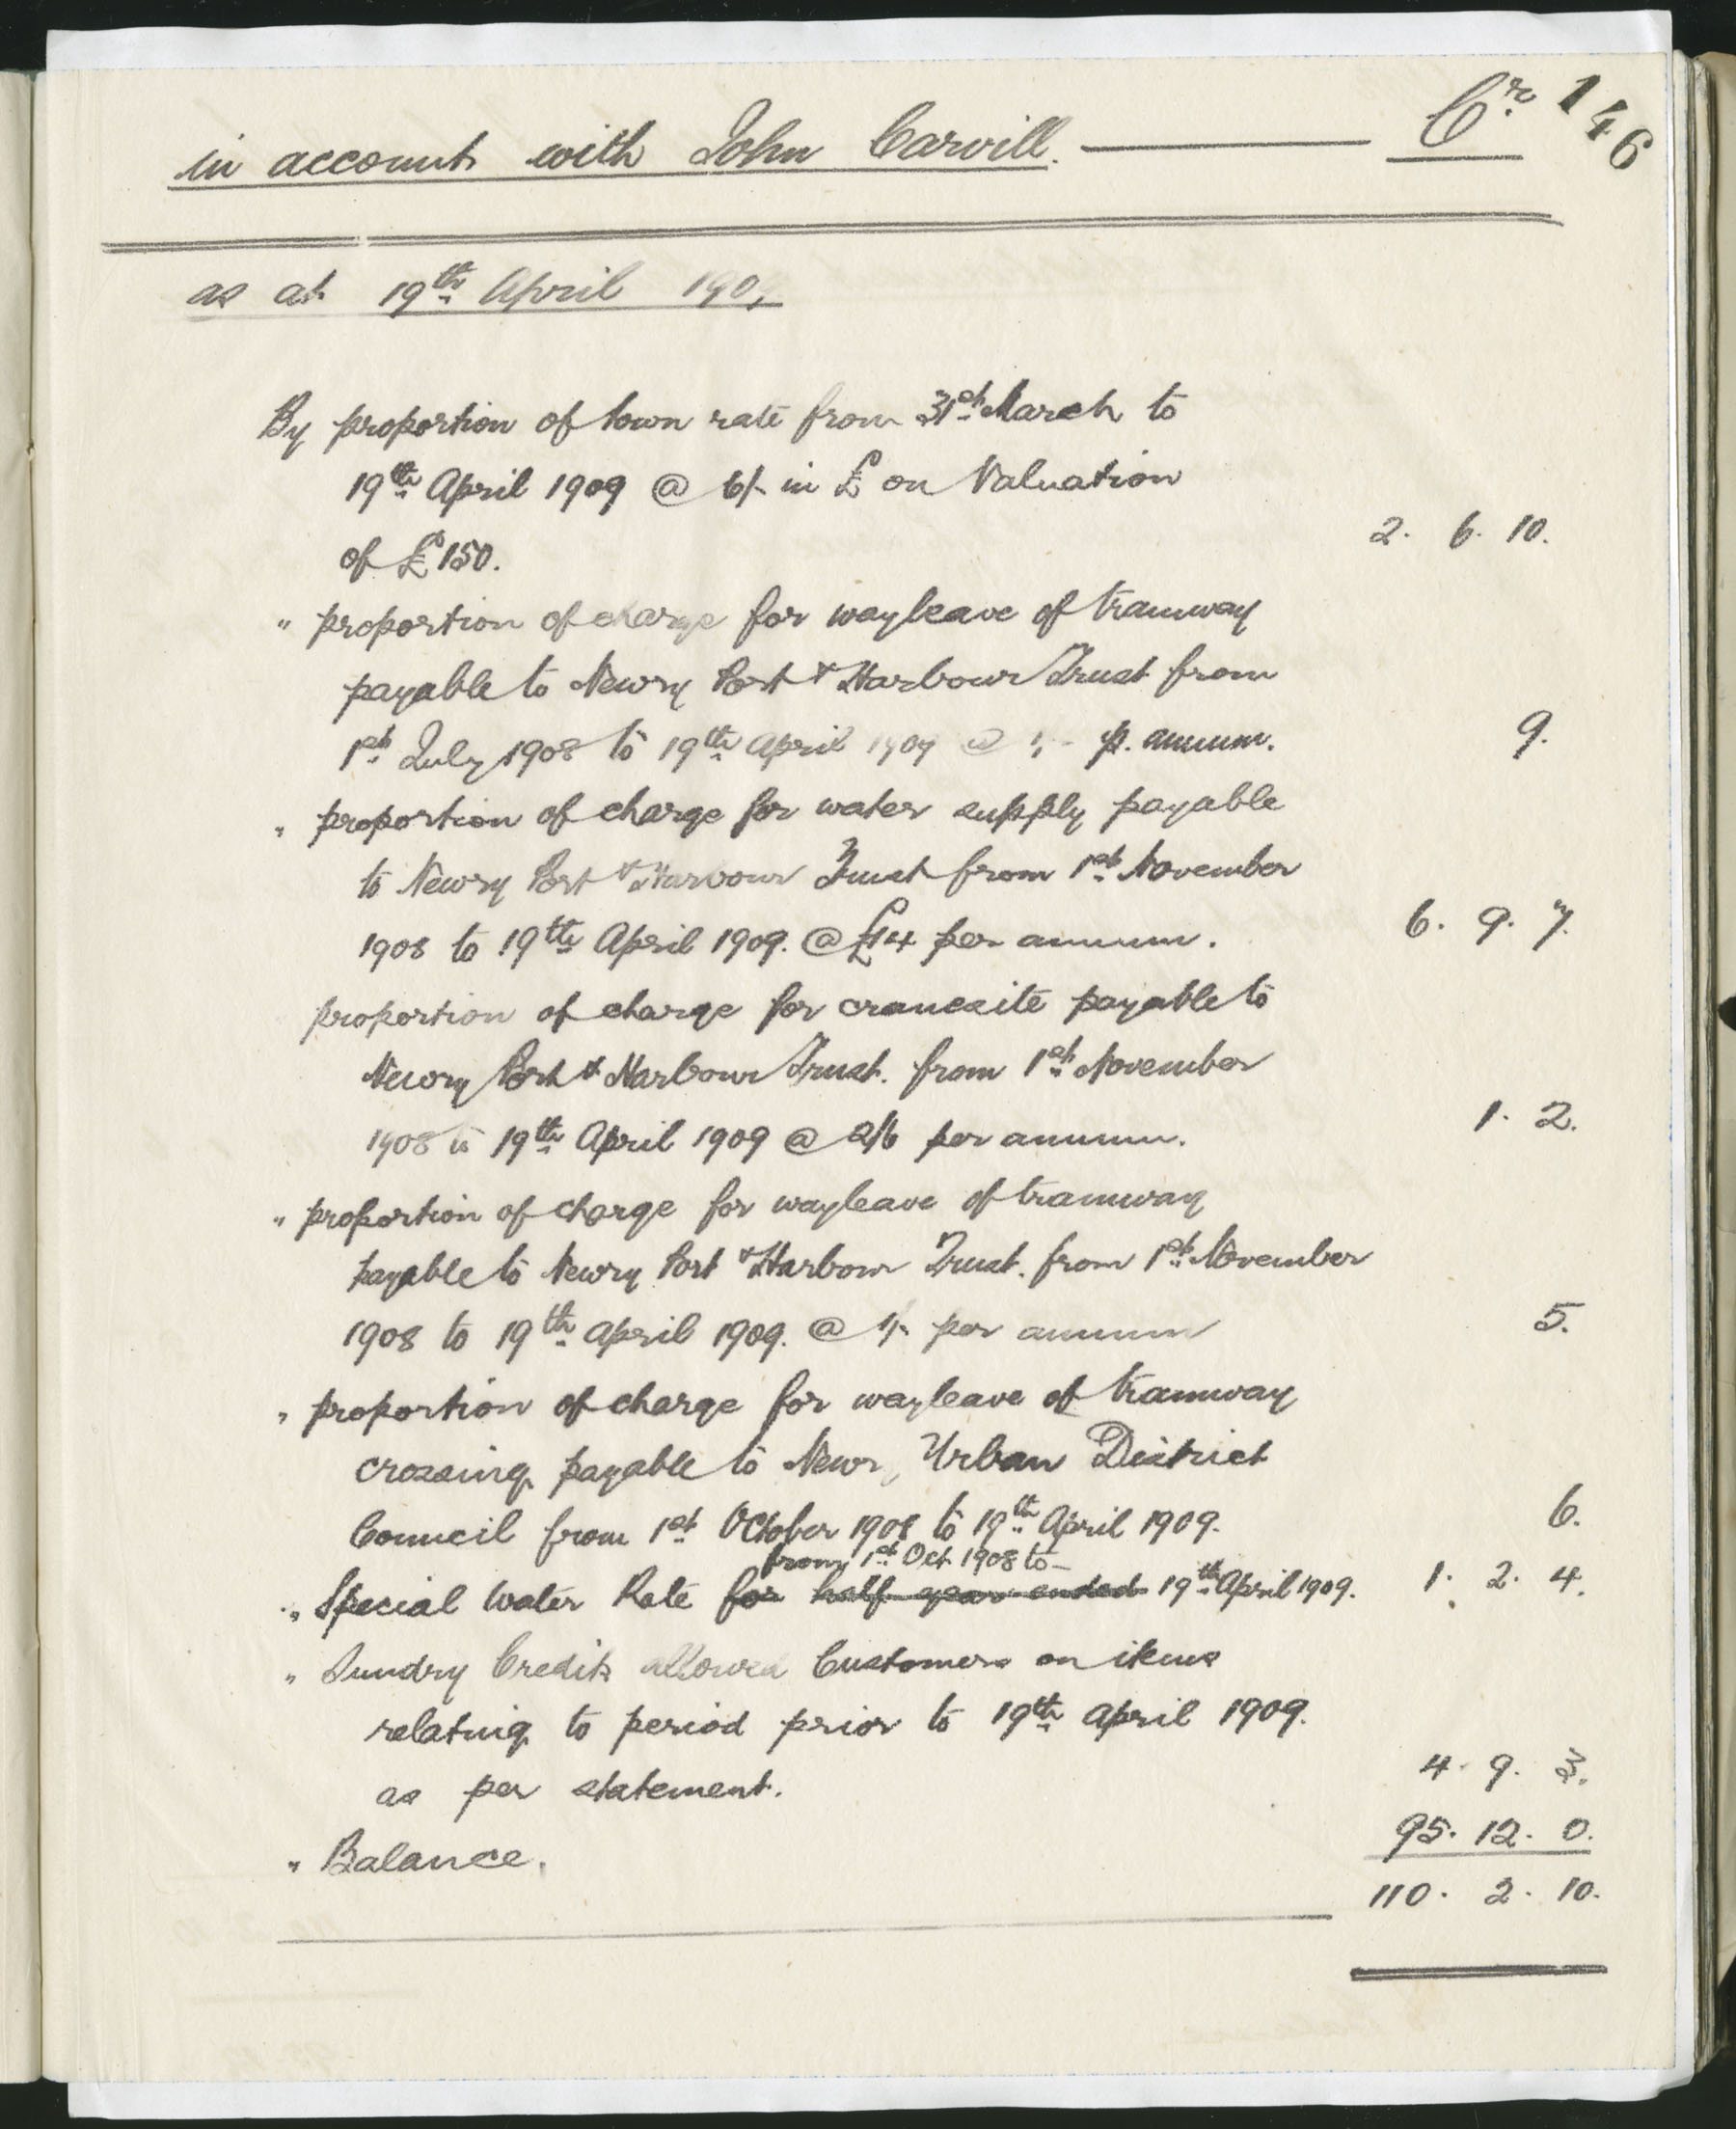 in account with John Carvill. Cr. 146
as at 19th April 190
By proportion of town rate from 31st March to
19th April 1909 @ 6/- in £ on Valuation
of £150. 2. 6. 10.
" proportion of charge for wayleave of tramway
payable to Newry Port & Harbour Trust from
1st July 1908 to 19th April 1909 @ 1/- p. annum. 9.
" proportion of charge for water supply payable
to Newry Port & Harbour Trust from 1st November
1908 to 19th April 1909. @ £14 per annum. 6. 9. 7.
proportion of charge for cranesite payable to
Newry Port & Harbour Trust. from 1st November
1908 to 19th April 1909 @ 2/6 per annum. 1. 2.
" proportion of charge for wayleave of tramway
payable to Newry Port & Harbour Trust. from 1st November
1908 to 19th April 1909. @ 1/- per annum 5.
" proportion of charge for wayleave of tramway
crossing payable to Newry Urban District
Council from 1st October 1908 to 19th April 1909. 6.
from 1st Oct 1908 to
" Special Water Rate for half year ended 19th April 1909. 1. 2. 4.
" Sundry Credits allowed Customers on items
relating to period prior to 19th April 1909.
as per statement. 4. 9. 3.
" Balance. 95. 12. 0.
110. 2. 10.